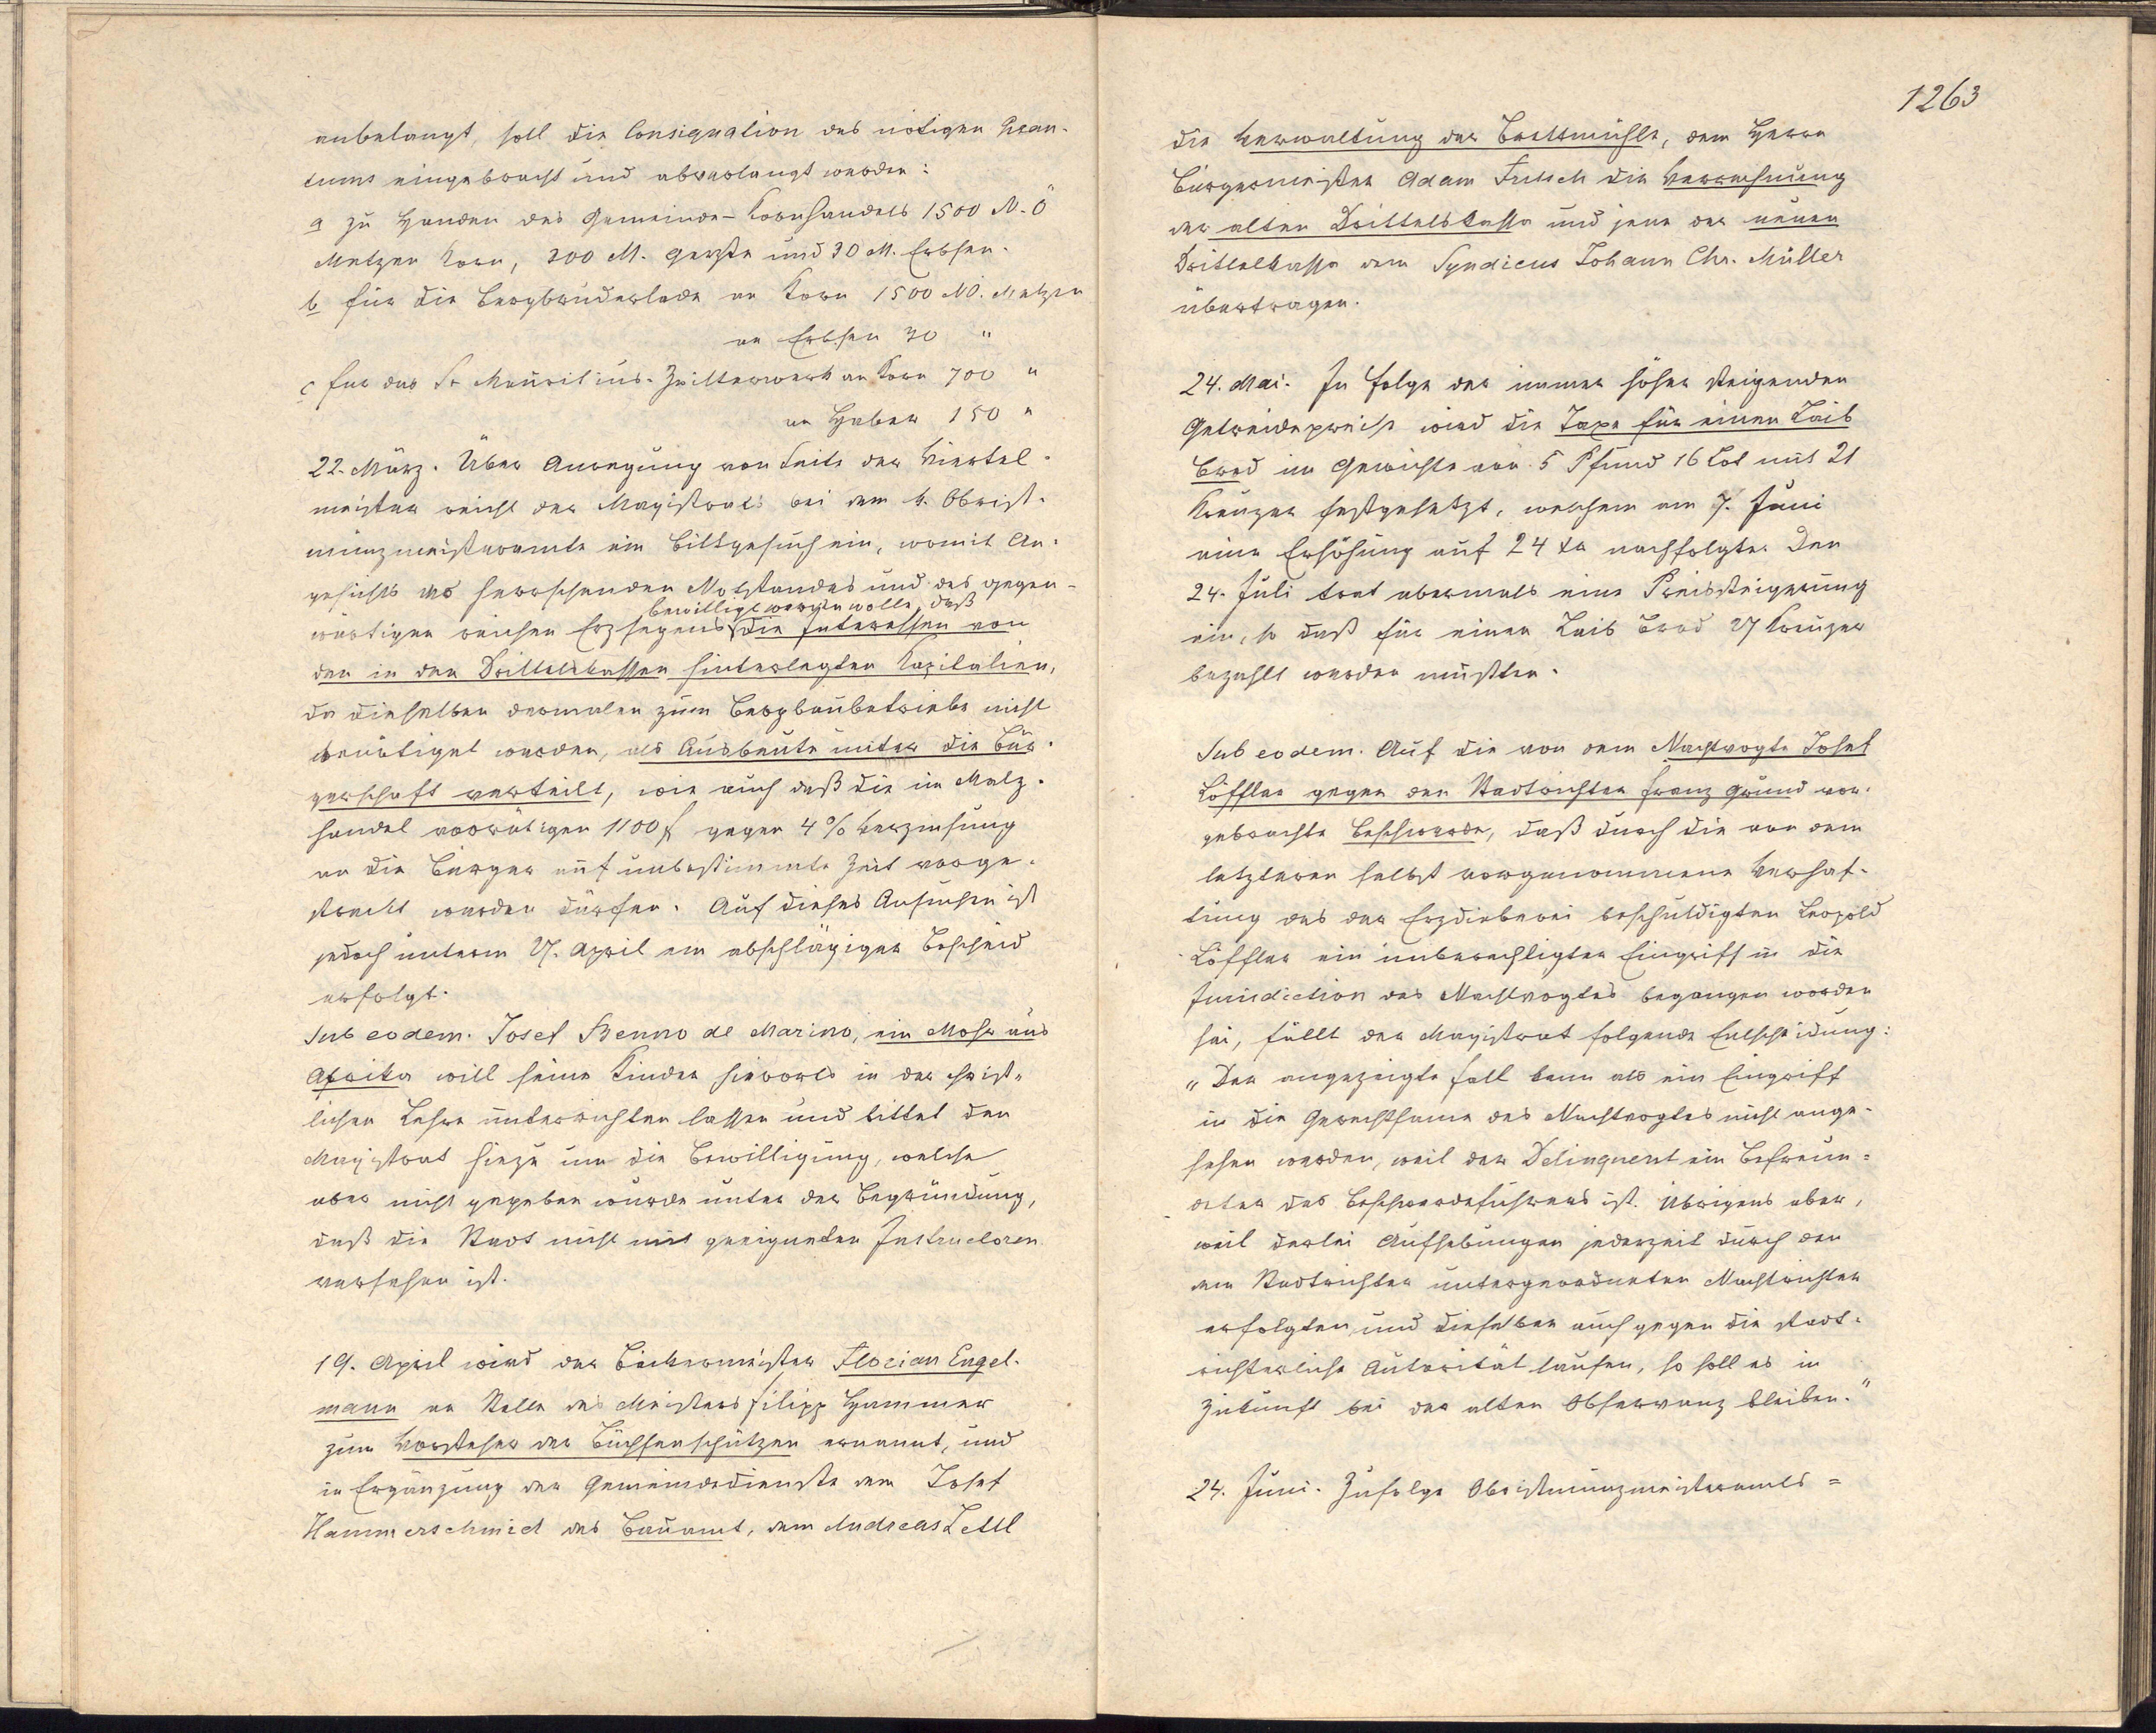 anbelangt, soll die Consignation des nötigen Quan-
tums eingebracht und abverlangt werden:
a zu Handen des Gemeinde-Kornhandels 1500 N.Ö
Metzen Korn, 200 M. Gerste und 30 M. Erbsen.
b für die Bergbruderlade an Korn 1500 NÖ. Metzen
an Erbsen 30 "
c für das St Mauritius-Zwitterwerk an Korn 700 "
an Haber 150 "
22. März. Über Anregung von Seite der Viertel-
meister reicht der Magistrat bei dem k. Obrist-
münzmeisteramte ein Bittgesuch ein, womit An-
gesichts des herrschenden Notstandes und des gegen-
bewilligt werden wolle, daß
wärtigen reichen Erzsegens die Interessen von
den in den Drittelskassen hinterlegten Kapitalien,
da dieselben dermalen zum Bergbaubetriebe nicht
benötiget werden, als Ausbeute unter die Bür-
gerschaft verteilt, wie auch daß die im Malz-
handel vorrätigen 1100 f gegen 4% Verzinsung
an die Bürger auf unbestimmte Zeit vorge-
streckt werden dürfen. Auf dieses Ansuchen ist
jedoch unterm 27. April ein abschlägiger Bescheid
erfolgt.
Sub eodem. Josef Benno de Marino, ein Mohr aus
Afrika will seine Kinder hierorts in der christ-
lichen Lehre unterrichten lassen und bittet den
Magistrat hiezu um die Bewilligung, welche
aber nicht gegeben wurde unter der Begründung,
daß die Stadt nicht mit geeigneten Instructoren
versehen ist.
19. April wird der Bäckermeister Florian Engel-
mann an Stelle des Meisters Filipp Hammer
zum Vorsteher der Büchsenschützen ernannt, und
in Ergänzung der Gemeindedienste dem Josef
Hammerschmied das Bauamt, dem Andreas Lettl
1263
die Verwaltung der Brettmühle, dem Herrn
Bürgermeister Adam Fritsch die Verrechnung
der alten Drittelskassa und jene der neuen
Drittelkassa dem Syndicus Johann Chr. Müller
übertragen.
24. Mai. In Folge der immer höher steigenden
Getreidepreise wird die Taxe für einen Laib
Brod im Gewichte von 5 Pfund 16 Lot mit 21
Kreuzer festgesetzt, welchem am 7. Juni
eine Erhöhung auf 24 xr nachfolgte. Den
24. Juli trat abermals eine Preissteigerung
ein, so daß für einen Laib Brod 27 Kreuzer
bezahlt werden mußten.
Sub eodem. Auf die von dem Nachtvogte Josef
Löffler gegen den Stadtrichter Franz Grund vor-
gebrachte Beschwerde, daß durch die von dem
letzteren selbst vorgenommene Verhaf-
tung des der Erzdieberei beschuldigten Leopold
Löffler ein unberechtigter Eingriff in die
Jurisdiction des Nachtvogtes begangen worden
sei, fällt der Magistrat folgende Entscheidung:
"Der angezeigte Fall kann als ein Eingriff
in die Gerechtsame des Nachtvogtes nicht ange-
sehen werden, weil der Delinquent ein Befreun-
deter des Beschwerdeführers ist. Übrigens aber,
weil derlei Aufhebungen jederzeit durch den
dem Stadtrichter untergeordneten Nachtrichter
erfolgten und dieselben auch gegen die stadt-
richterliche Autorität laufen, so soll es in
Zukunft bei der alten Observanz bleiben."
24. Juni. Zufolge Obristmünzmeisteramts=